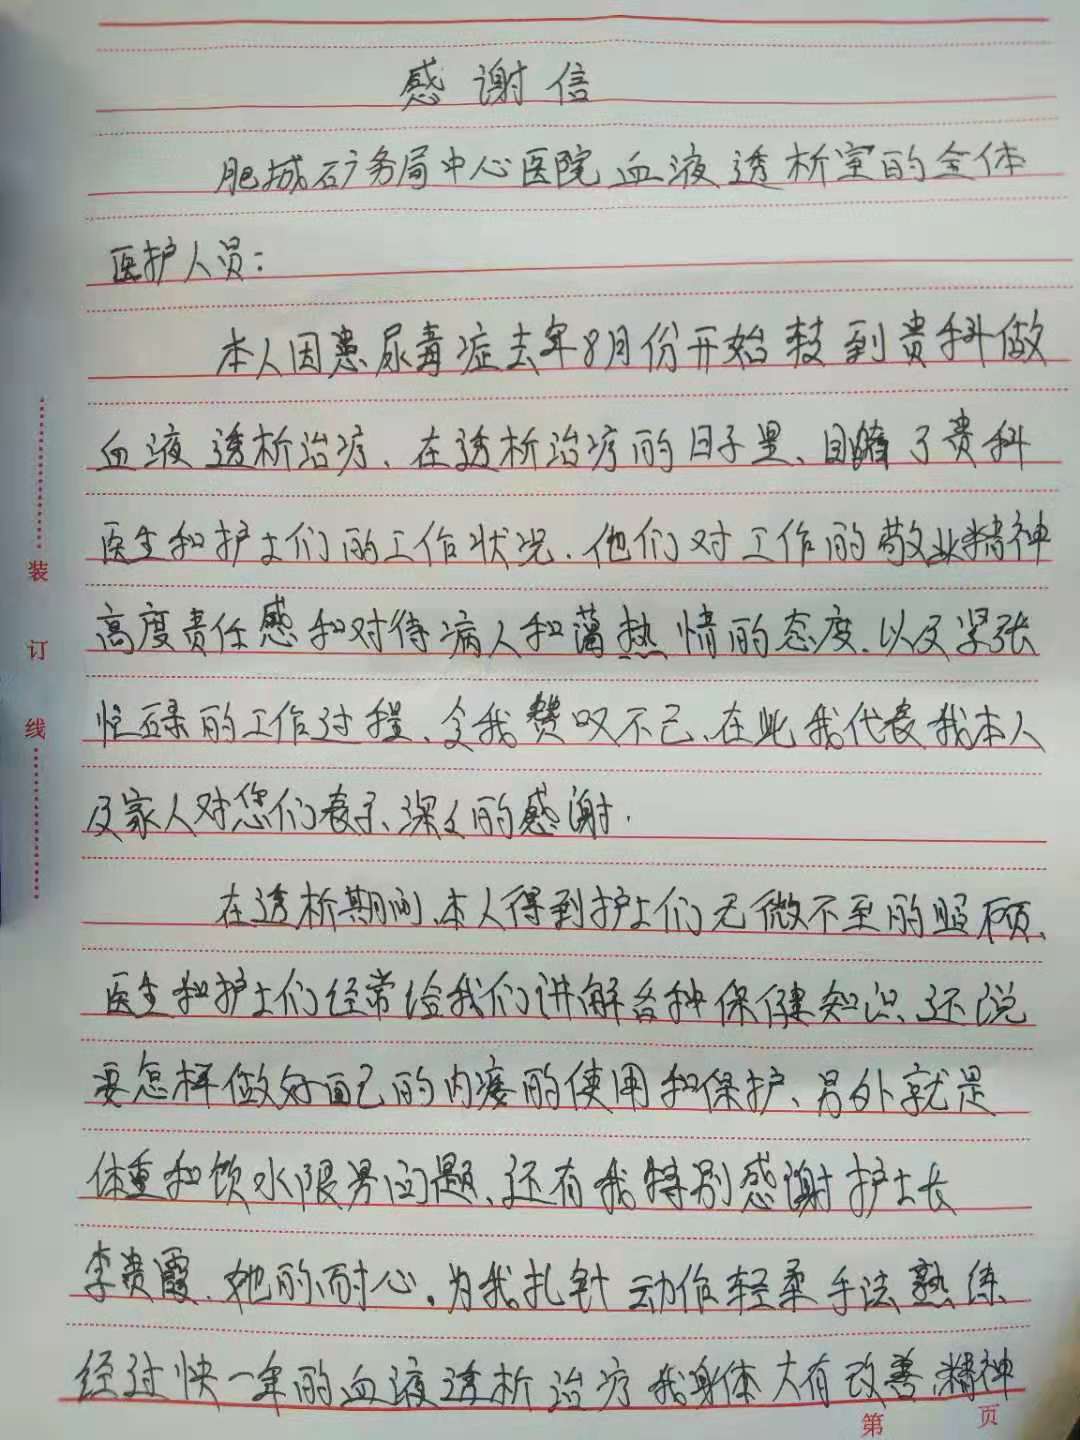 感谢信
肥城矿务局中心医院血液透析室的全体
医护人员：
本人因患尿毒症去年8月份开始转到贵科做
血液透析治疗、在透析治疗的日子里、目睹了贵科
医生和护士们的工作状况.他们对工作的敬业精神
高度责任感和对待病人和蔼热情的态度.以及紧张
忙碌的工作过程、令我赞叹不已、在此我代表我本人
及家人对您们表示深深的感谢.
在透析期间、本人得到护士们无微不至的照顾、
医生和护士们经常给我们讲解各种保健知识、还说
要怎样做好自己的内瘘的使用和保护、另外就是
体重和饮水限量问题、还有我特别感谢护士长
李贵霞.她的耐心.为我扎针动作轻柔手法熟练
经过快一年的血液透析治疗我身体大有改善、精神
装
订
线
第 页